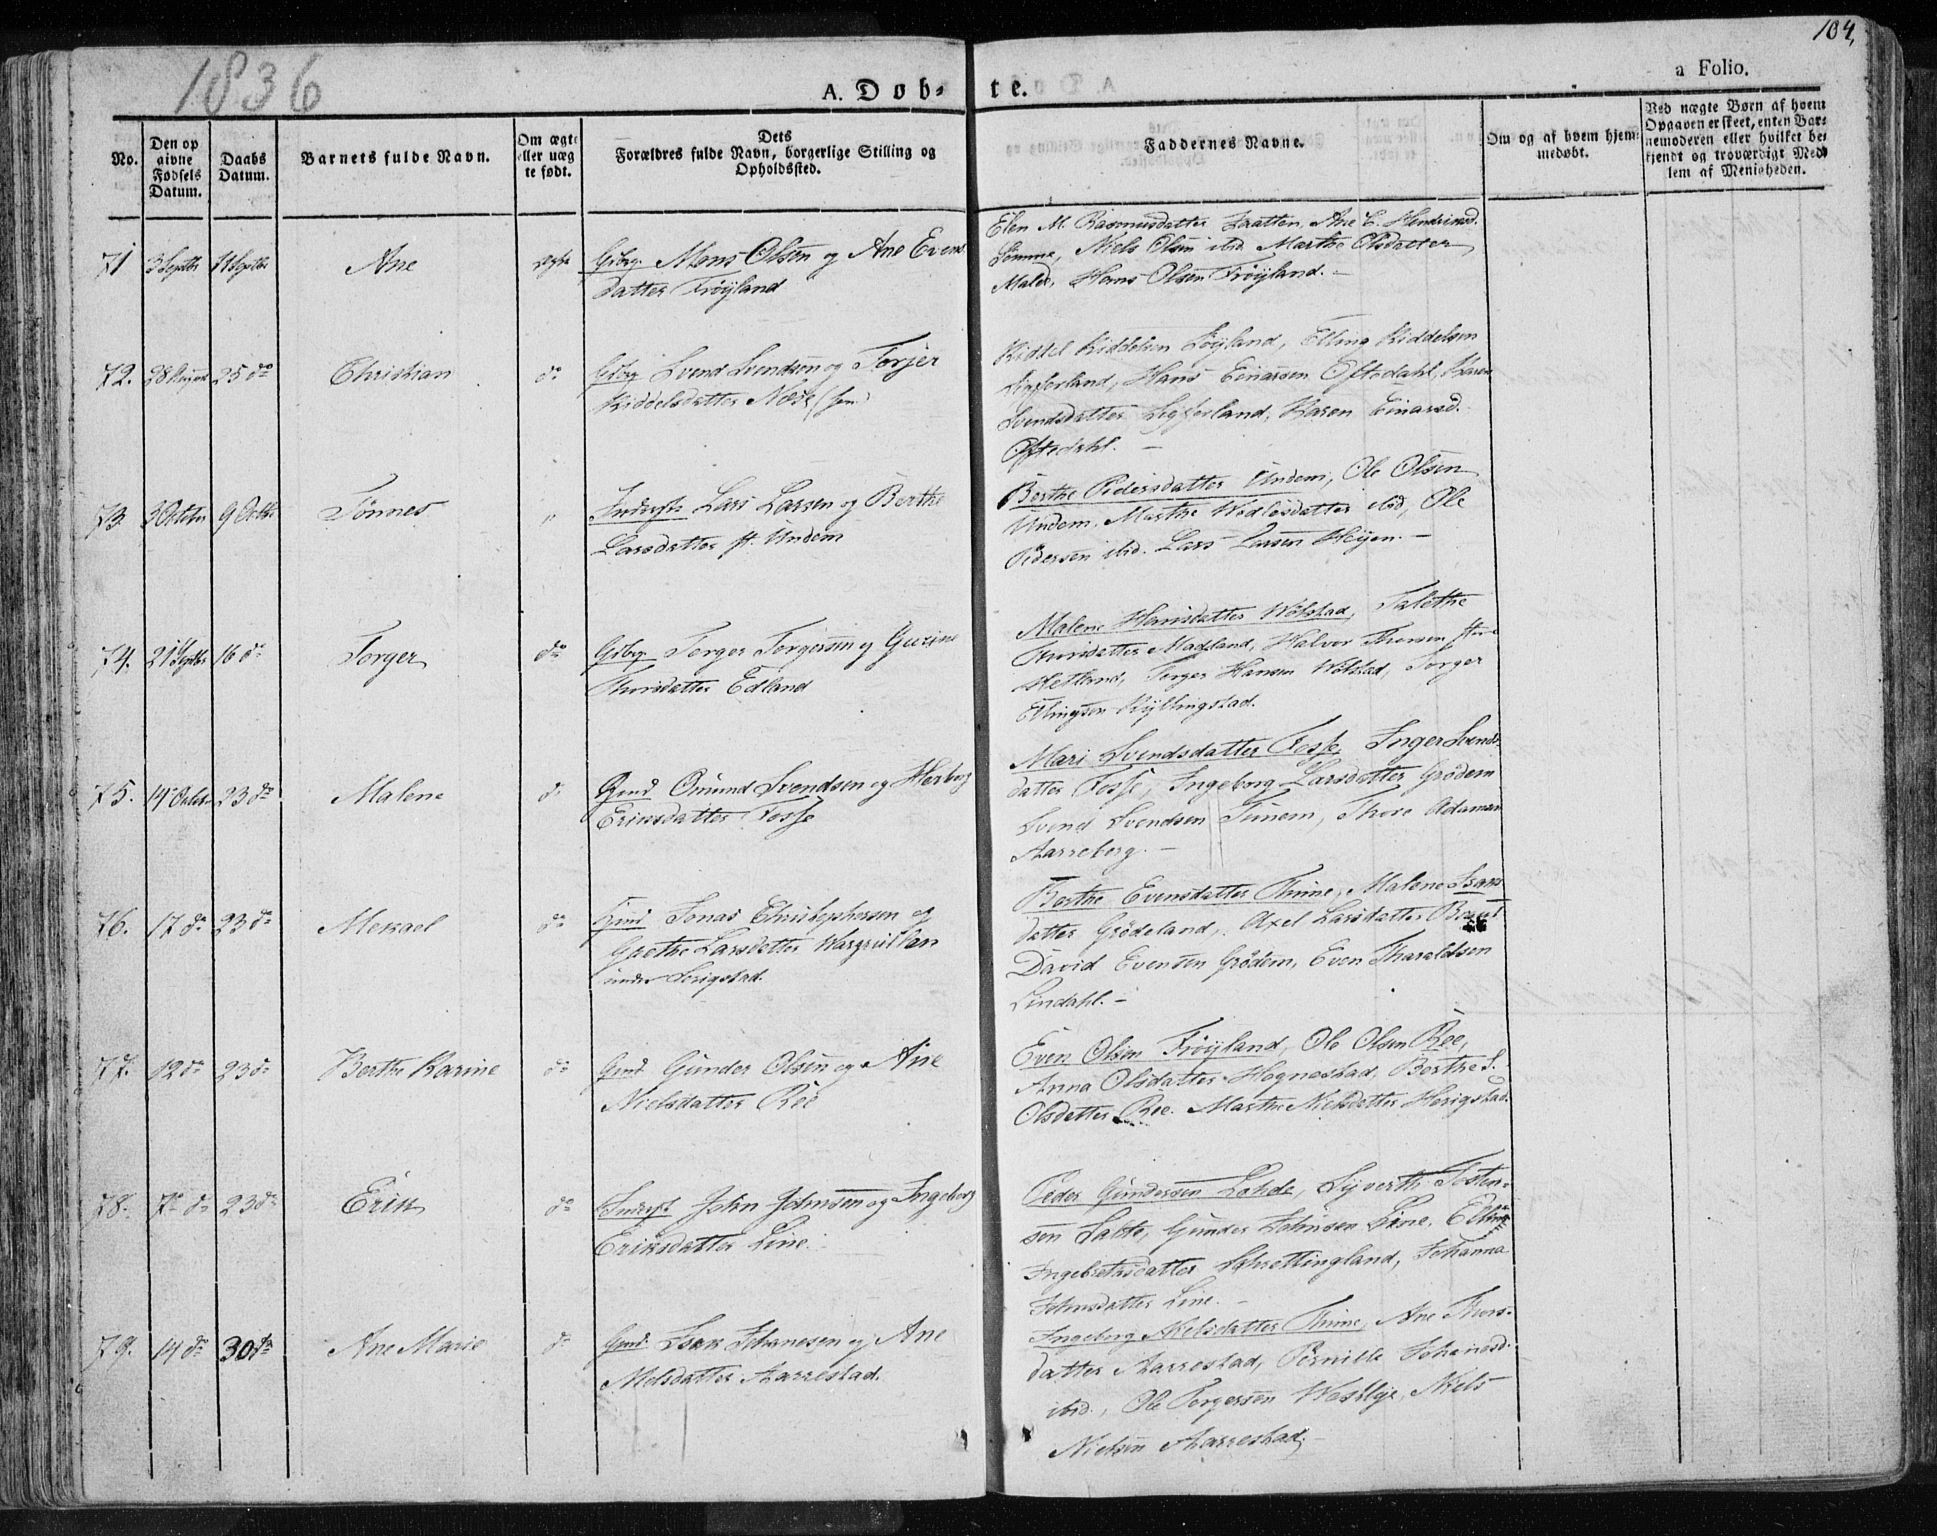 1836
104,
A. Døb-
te.
a Folio.
No.
Den op
givne
Fødsels
Datum.
Daabs
Datum.
Barnets fulde Navn.
Om ægte
eller uæg
te født.
Dets
Forældres fulde Navn, borgerlige Stilling og
Opholdssted.
Faddernes Navne.
Om og af hvem hjem
medøbt.
Ved uægte Børn af hvem
Opgaven er skeet, enten Bar-
nemoderen eller hvilket be
kjendt og troværdigt Med
lem af Menigheden.
71 3 Septbr 11 Septbr Ane ægte Gibrg. Mons Olsen og Ane Evens
datter Frøyland
Elen M. Rasmusdatter Laatten, Ane C. Hendriksd.
Lomme, Niels Olsen ibid Marthe Olsdatter
Male, Hans Olsen Frøyland. –
72. 28 August 25 do Christian do Gibrg Svend Svendsen og Torjer
Kiddelsdatter Næse
Kiddel Kiddelsen Løyland, Elling Kiddelsen
Ligferland, Hans Einarsen Oftedahl, Karen
Svendsdatter Ligferland, Karen Einarsd.
Oftedahl. –
73 3 Octbr 9 Octbr Tønnes " Inderst Lars Larsen og Berthe
Larsdatter pl. Undem
Berthe Pedersdatter Undem, Ole Olsen
Undem, Marthe ibid, Ole
Pedersen ibid. Lars Larsen Høyen. –
74. 21 Septbr 16 do Torger do Gibrg. Torger Torgersen og Gurine
Thorsdatter Edland
Malene Hansdatter Wølstad, Talethe
Thorsdatter Madland, Halvor Thorsen
Hetland, Torger Hansen Wølstad, Torger
Ellingsen Kyllingstad.
75. 14 Octbr 23 do Malene do Gmd Omund Svendsen og Herborg
Eriksdatter Fosse
Mari Svendsdatter Fosse, Inger Svends-
datter Fosse, Ingeborg Larsdatter Grødem
Svend Svendsen Tunem, Thore Adamsen
Aarreberg. –
76. 17 do 23 do Mekael do Gmd Jonas Christophersen og
Grethe Larsdatter
under Serigstad.
Berthe Evensdatter Thime, Malene
datter Grødeland, Axel Larsdatter
David Evensen Grødem, Even Tharaldsen
Lindahl. –
77. 12 do 23 do Berthe Karine do Gmd. Gunder Olsen og Ane
Nielsdatter Ree
Even Olsen Frøyland, Ole Olsen Ree,
Anna Olsdatter Hognestad, Berthe S.
Olsdatter Ree. Marthe Nielsdatter Herigstad.
78. 7de do 23 do Erik do Inderst John Johnsen og Ingeborg
Eriksdatter Line.
Peder Gundersen Lohde, Syverth Tosten-
sen Salte, Gunder Johnsen Line,
Ingebretsdatter Schrettingland, Johanna
Johnsdatter Line. –
79. 14 do 30 do Ane Marie do Gmd. Isak Johanesen og Ane
Melsdatter Aarrestad.
Ingeborg Nielsdatter Thime, Ane Thors-
datter Aarrestad, Pernille Johanesd.
ibid., Ole Torgersen Westlye, Niels
Nielsen Aarrestad. –